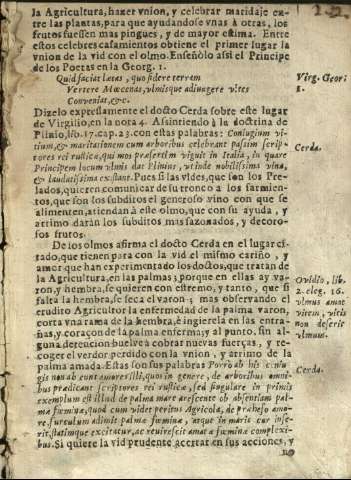 la Agricultura, hazer vnion, y celebrar maridaje entre
las plantas, para que ayudandose vnas à otras, los
frutos fuessen mas pingues, y de mayor estima. Entre
estos celebres casamientos obtiene el primer lugar la
vnion de la vid con el olmo. Enseñòlo assi el Principe
de los Poetas en la Georg. 1.
Quid faciat lætas, quo sidere terram
Virg. Geor.
1.
Vertere Mœcenas, vlmisque adiungere vites
Conveniat, &c.
Dizelo expressamente el docto Cerda sobre este lugar
de Virgilio, en la nota 4. Assintiendo à la doctrina de
Plinio, lib. 17. cap. 23. con estas palabras: Coniugium vi-
tium, & maritationem cum arboribus celebrant passim scrip-
tores rei rustica, qui mos præsertim viguit in Italia, in quare
Cerda.
Principem locum vlmis dat Plinius, vt inde nobilissima vina,
& laudatissima existant. Pues si las vides, que son los Pre-
lados, quieren comunicar de su tronco a los sarmien-
tos, que son los subditos el generoso vino con que se
alimenten, atiendan à este olmo, que con su ayuda, y
arrimo daràn los subditos mas sazonados, y decoro-
sos frutos.
De los olmos afirma el docto Cerda en el lugar ci-
tado, que tienen para con la vid el mismo cariño, y
amor que han experimentado los doctos, que tratan de
la Agricultura, en las palmas; porque en ellas ay va-
ron, y hembra, se quieren con estremo, y tanto, que si
falta la hembra, se seca el varon; mas observando el
erudito Agricultor la enfermedad de la palma varon,
corta vna rama de la hembra, è ingerela en las entra-
ñas, y coraçon de la palma enferma; y al punto, sin al-
guna detencion buelve à cobrar nuevas fuerças, y re-
coger el verdor perdido con la vnion, y arrimo de la
Ovidio, lib.
2. eleg. 16.
vlmus amat
vitem, vitis
non deserit
vlmum.
palma amada. Estas son sus palabras Porro ab his coniu-
gijs non abeunt amores illi, quos in genere, de arboribus omni-
bus prædicant scriptores rei rustica, sed singulare in primis
Cerda.
exemplum est illud de palma mare arescente ob absentiam pal-
ma fœmina, quod cum videt peritus Agricola, de prahenso amo-
re, surculum adimit palma fœmina, atque in maris cur inse-
rit, statimque excitatur, ac reuirescit amata fœmina complexi-
bus. Si quiere la vid prudente acertar en sus acciones, y
no